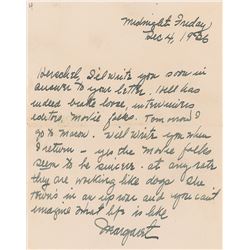 Midnight Friday,
Dec 4, 1936
Herschel, I'll write you soon in
answer to your letter. Hell has
indeed broke loose, interviewers
editors, movie folks. Tomorrow I
go to Macon. Will write you when
I return - yes the movie folks
seem to be sincere. at any rate
they are working like dogs. The
town's in an uproar and you can't
imagine what life is like.
Margaret